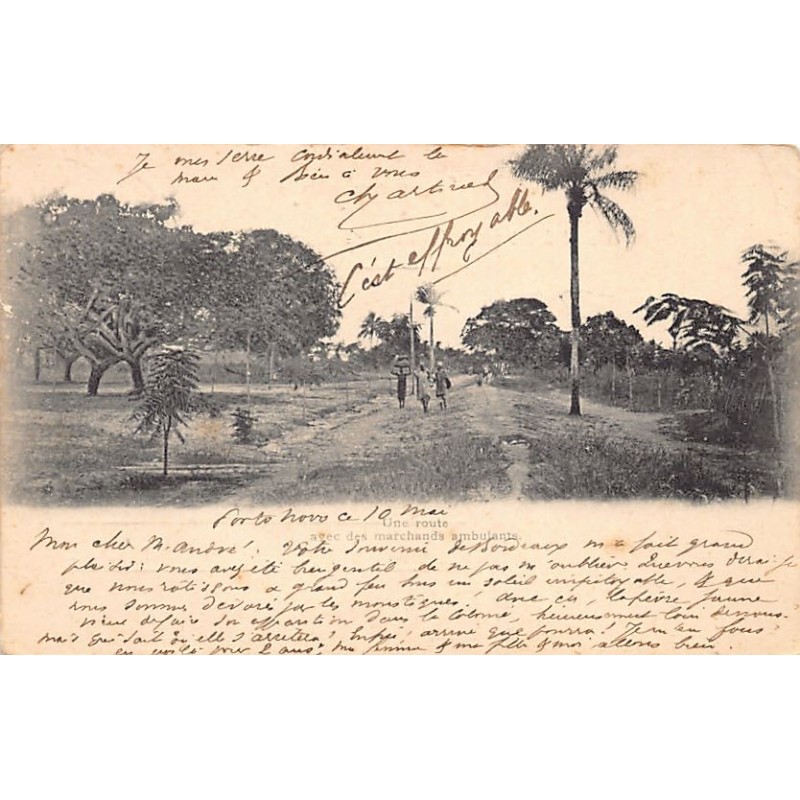 Je vous serre cordialement la
main & bien à vous
C'est effroyable.
Porto Novo ce 10 Mai
Une route
avec des marchands ambulants.
Mon cher M. André! Votre souvenir de Bordeaux m'a fait grand
plaisir: vous avez été bien gentil de ne pas m'oublier. Que vous dirai-je
que nous rôtissons a grand feu sous un soleil impitoyable, & que
nous sommes dévoré par les moustiques! avec ça, la fièvre jaune
vient de faire son apparition dans la colonie, heureusement loin de nous.
mais qui sait qu'elle s'arrêtera! Enfin, arrive que pourra! Je m'en fous
en voilà pour 2 ans, ma femme & ma fille & moi allons bien.